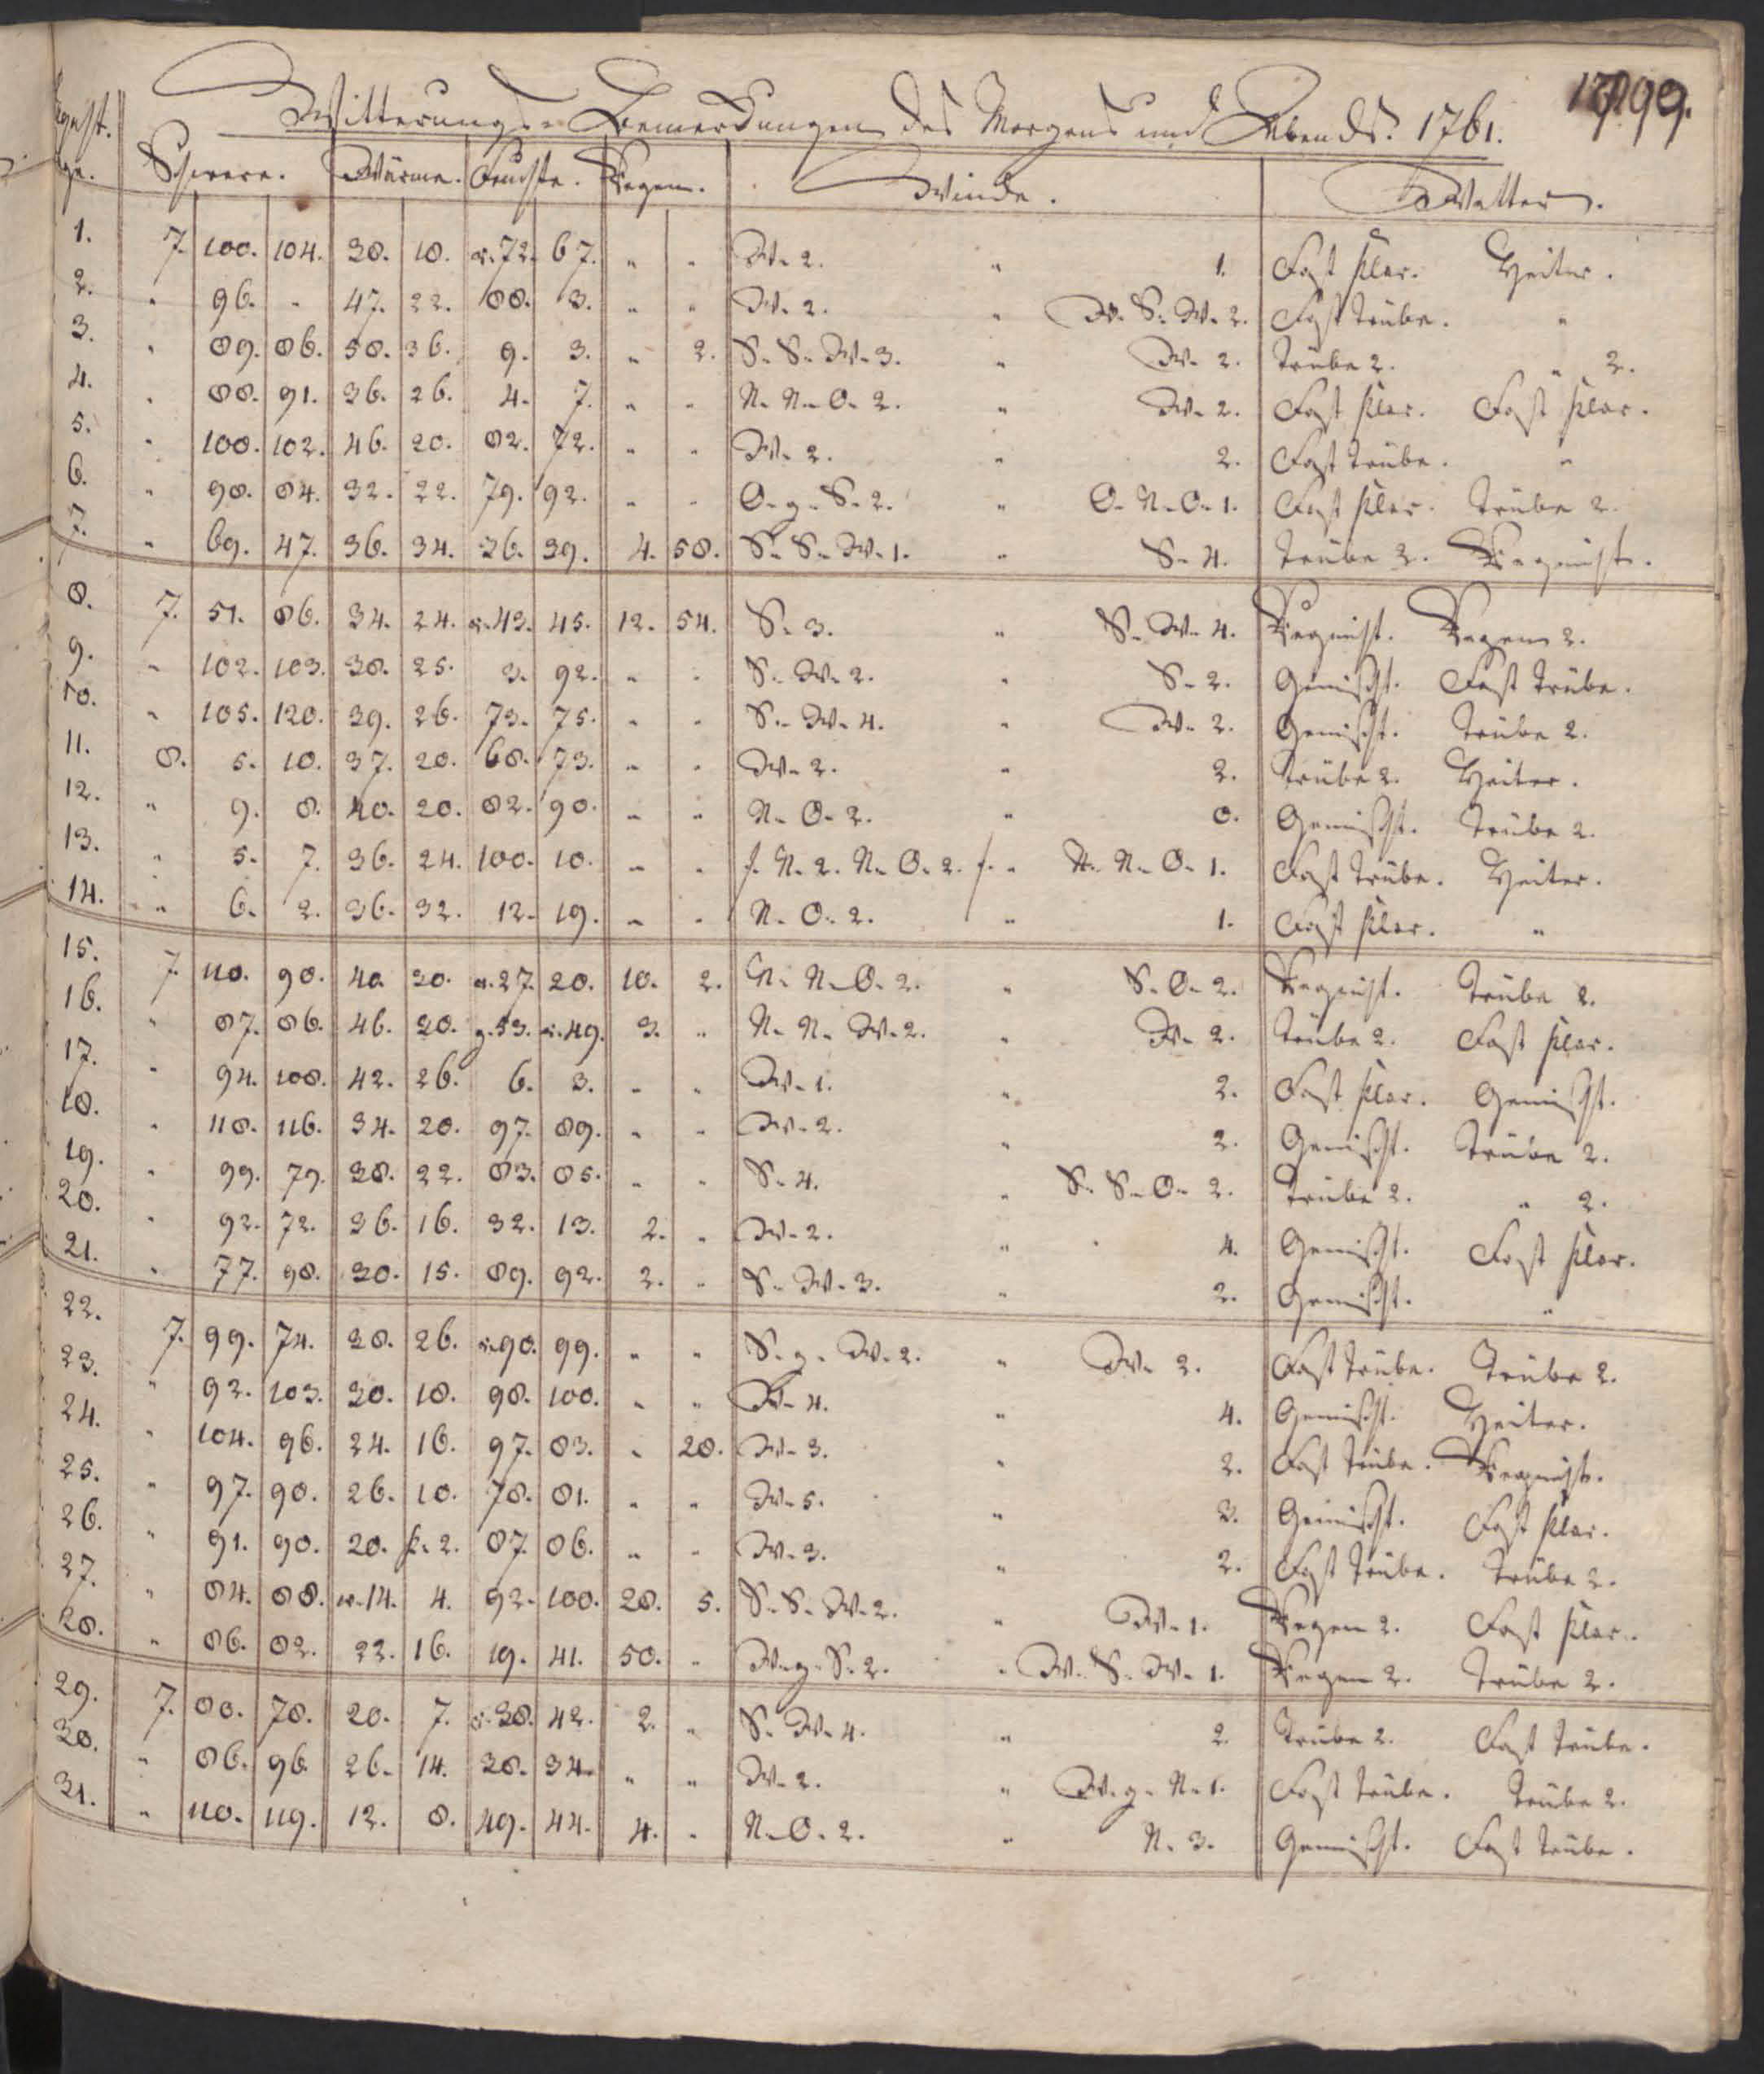 Witterungs-Bemerkungen des Morgens und Abends. 1761.
99.
Schwere. Wärme. Feuchte. Regen. Winde. Wetter.
1. 7. 100. 104. 38. 18. 72. 67. " " W. 2. " 1. Fast klar. Heiter.
2. " 96. " 47. 22. 88. 3. " " W. 2. " W. S. W. 2. Fast trübe. "
3. " 89. 86. 50. 36. 9. 3. " 2. S. S. W. 3. " W. 2. Trübe 2. " 2.
4. " 88. 91. 36. 26. 4. 7. " " N. N. O. 2. " W. 2. Fast klar. Fast klar.
5. " 100. 102. 46. 20. 82. 72. " " W. 2. " 2. Fast trübe. "
6. " 98. 84. 32. 22. 79. 92. " " O. g. S. 2. " O. N. O. 1. Fast klar. Trübe 2.
7. " 69. 47. 36. 34. 36. 39. 4. 58. S. S. W. 1. " S. 4. Trübe 2. Regnicht.
8. 7. 51. 86. 34. 24. 43. 45. 12. 54. S. 3. " S. W. 4. Regnicht. Regen 2.
9. " 102. 103. 38. 25. 3. 92. " " S. W. 2. " S. 2. Gemischt. Fast trübe.
10. " 105. 120. 39. 26. 73. 75. " " S. W. 4. " W. 2. Gemischt. Trübe 2.
11. 8. 5. 10. 37. 20. 68. 73. " " W. 2. " 2. Trübe 2. Heiter.
12. " 9. 8. 40. 20. 82. 90. " " N. O. 2. " 0. Gemischt. Trübe 2.
13. " 5. 7. 36. 24. 100. 10. " " f. N. 2. N. O. 2. f. " N. N. O. 1. Fast trübe. Heiter.
14. " 6. 2. 36. 32. 12. 19. " " N. O. 2. " 1. Fast klar. "
15. 7. 110. 90. 40. 30. 27. 20. 10. 2. N. N. O. 2. " S. O. 2. Regnicht. Trübe 2.
16. " 87. 86. 46. 20. g. 53. 49. 3. " N. N. W. 2. " W. 2. Trübe 2. Fast klar.
17. " 94. 108. 42. 26. 6. 3. " " W. 1. " 2. Fast klar. Gemischt.
18. " 118. 116. 34. 20. 97. 89. " " W. 2. " 2. Gemischt. Trübe 2.
19. " 99. 79. 38. 22. 83. 85. " " S. 4. " S. S. O. 2. Trübe 2. " 2.
20. " 92. 72. 36. 16. 32. 13. 2. " W. 2. " 4. Gemischt. Fast klar.
21. " 77. 98. 30. 15. 89. 92. 2. " S. W. 3. " 2. Gemischt. "
22. 7. 99. 74. 28. 26. 90. 99. " " S. g. W. 2. " W. 2. Fast trübe. Trübe 2.
23. " 92. 103. 30. 18. 98. 100. " " W. 4. " 4. Gemischt. Heiter.
24. " 104. 96. 24. 16. 97. 83. " 20. W. 3. " 2. Fast trübe. Regnicht.
25. " 97. 90. 26. 10. 78. 81. " " W. 5. " 3. Gemischt. Fast klar.
26. " 91. 90. 20. k. 2. 87. 86. " " W. 3. " 2. Fast trübe. Trübe 2.
27. " 84. 88. w. 14. 4. 92. 100. 28. 5. S. S. W. 2. " W. 1. Regen 2. Fast klar.
28. " 86. 82. 22. 16. 19. 41. 50. " W. g. S. 2. " W. S. W. 1. Regen 2. Trübe 2.
29. 7. 80. 78. 20. 7. 38. 42. 2. " S. W. 4. " 2. Trübe 2. Fast trübe.
30. " 86. 96. 26. 14. 38. 34. " " W. 2. " W. g. N. 1. Fast trübe. Trübe 2.
31. " 110. 119. 12. 8. 49. 44. 4. " N. O. 2. " N. 3. Gemischt. Fast trübe.